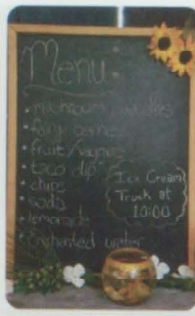 Menu:
• mushroom
• fairy berries
• fruit/veggies
• taco dip
• chips
• soda
• lemonade
• Enchanted water
Ice Cream
Truck at
10:00